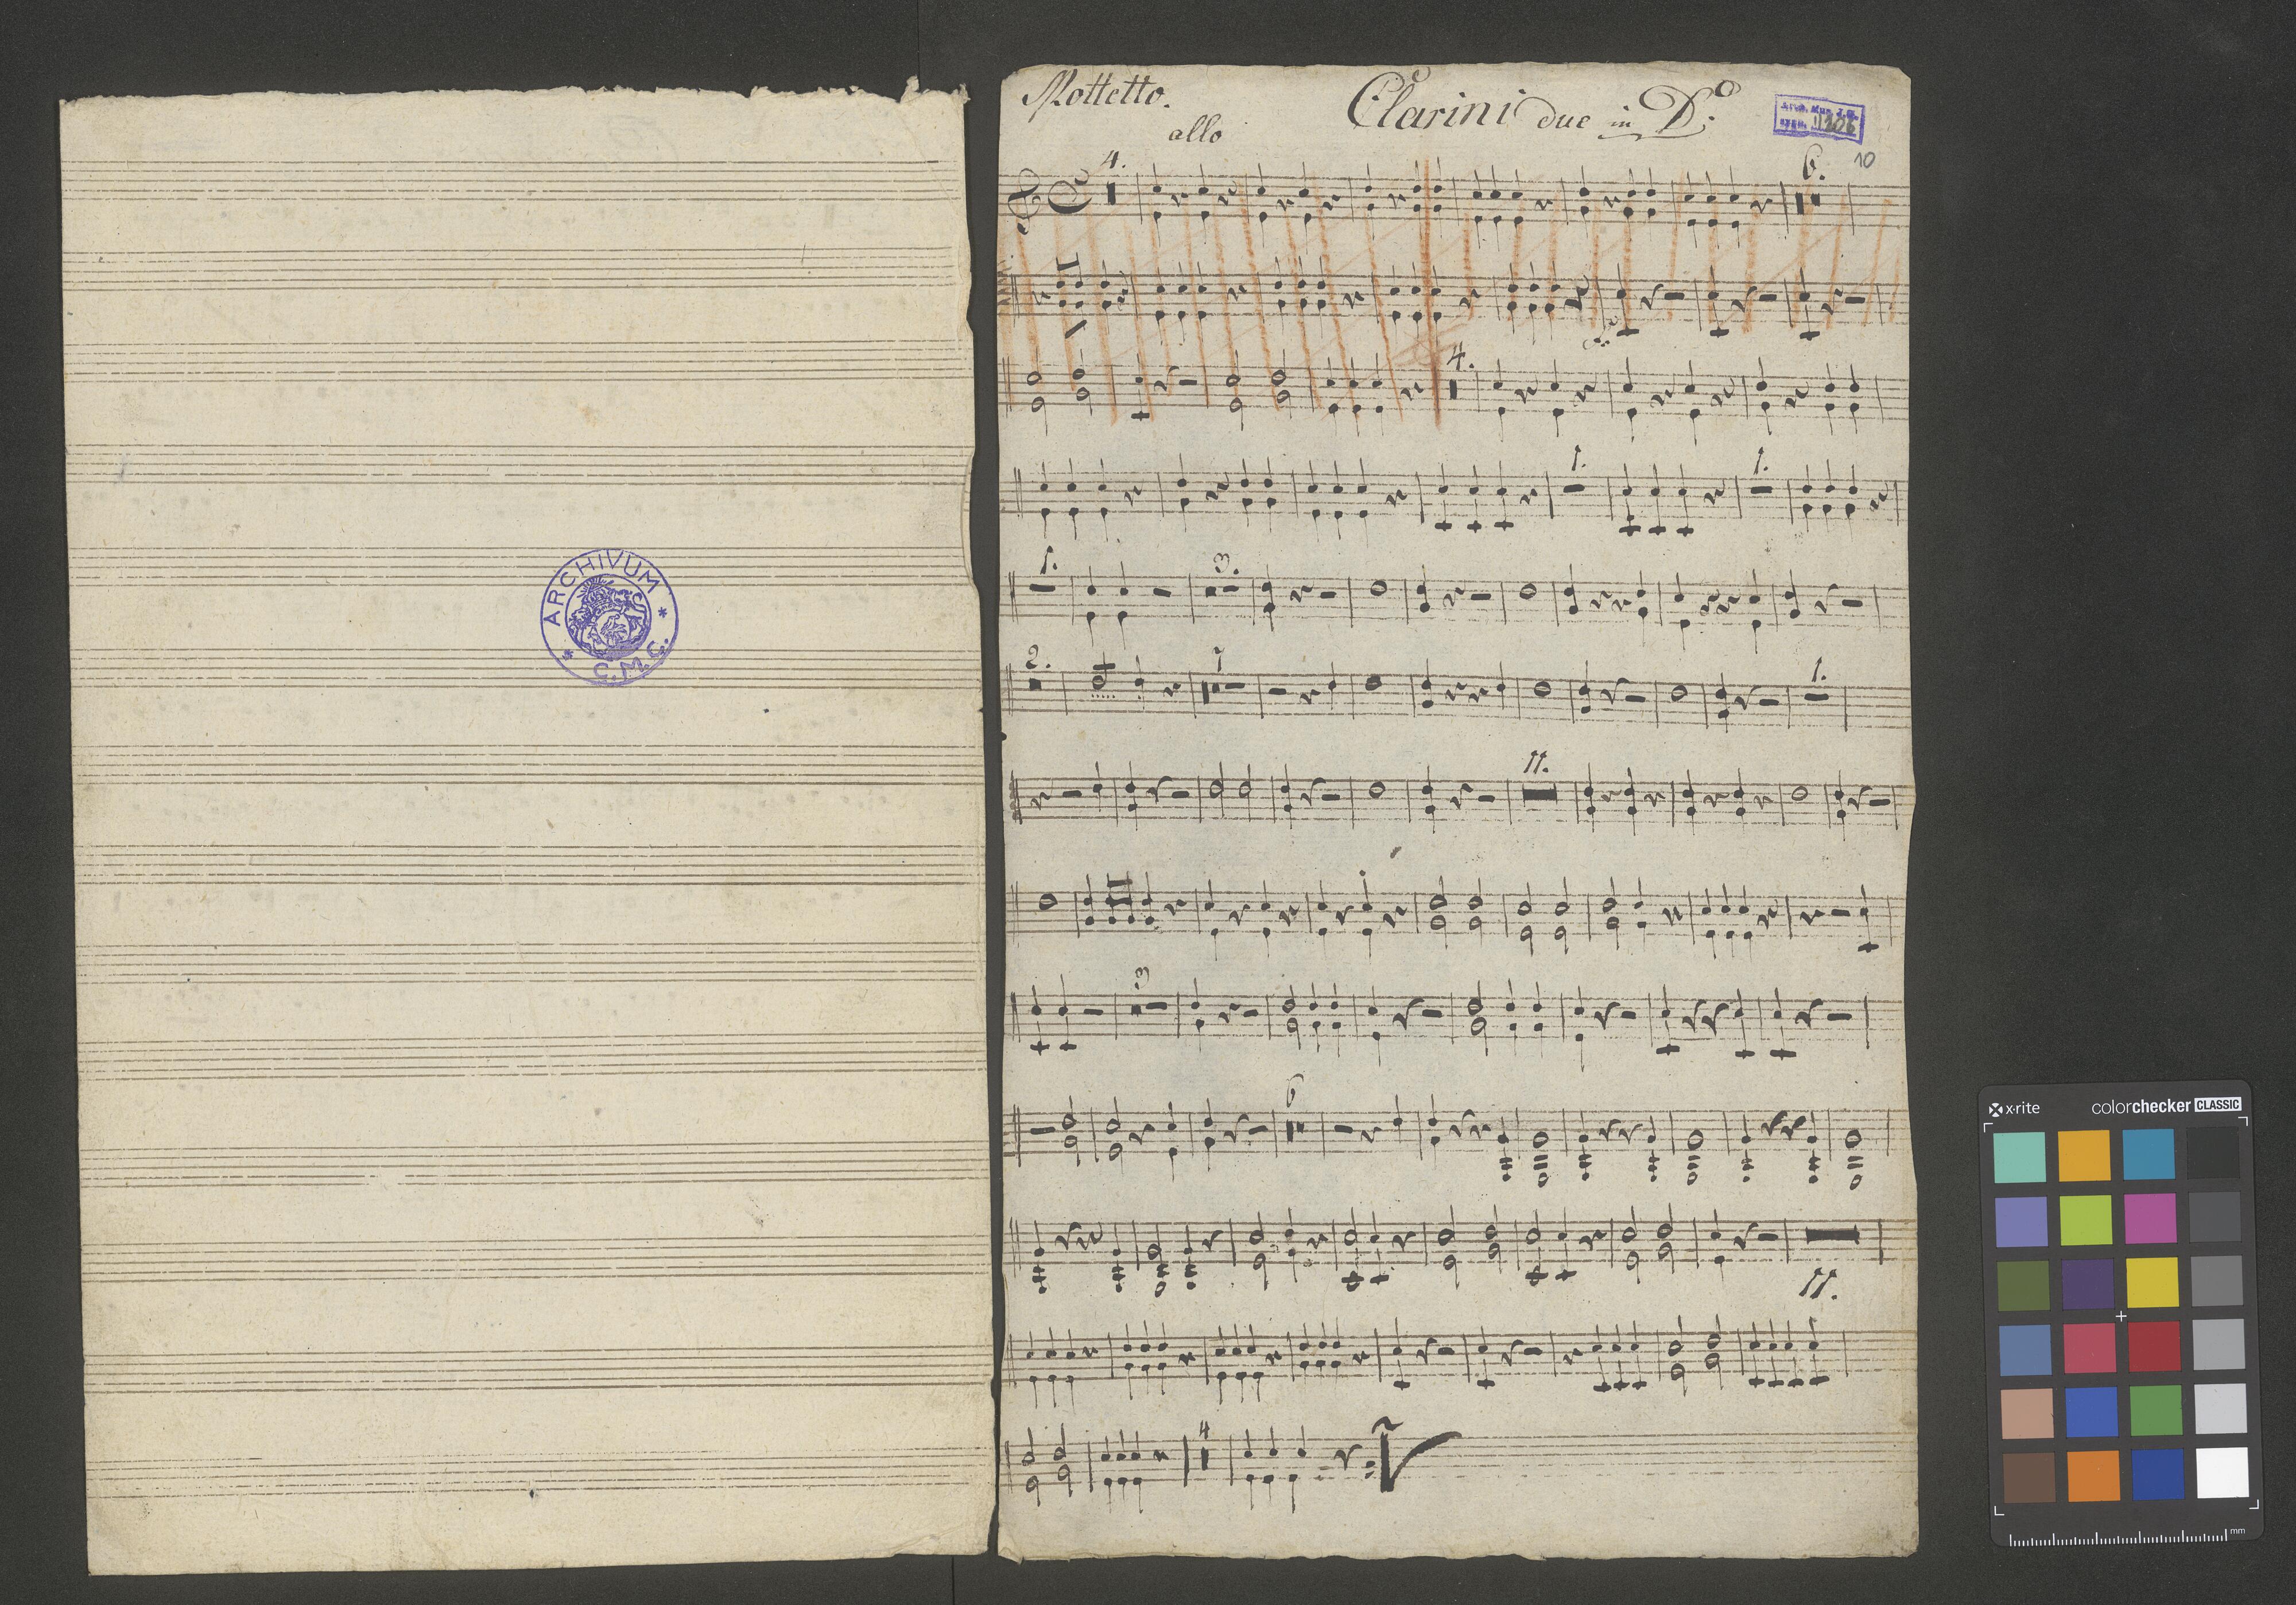 Mottetto.
Clarini due in D.
allo
10
4.
6.
4.
1.
1.
1.
3.
2.
7
1.
11.
3
6
11.
4
ARCHIVUM
C.M.C.
x-rite
colorchecker CLASSIC
mm